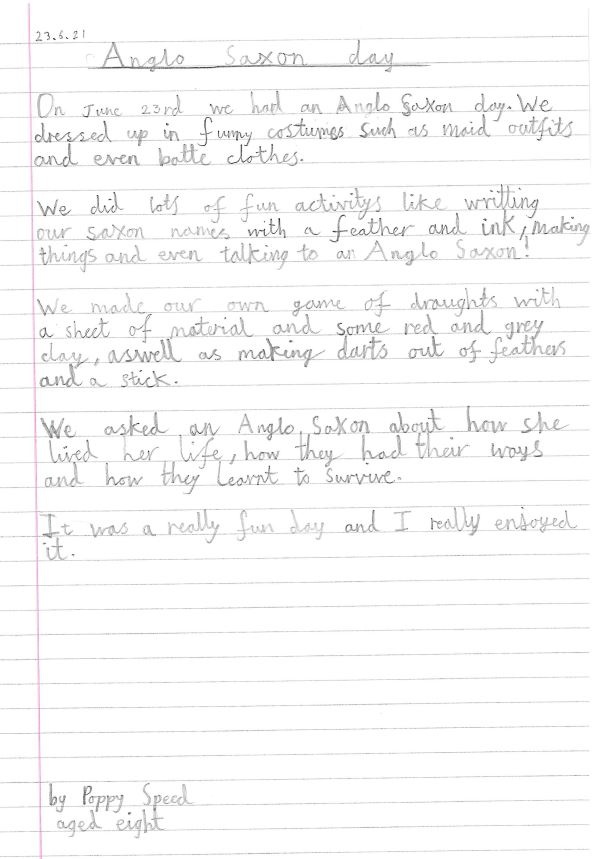 23.6.21
Anglo Saxon day
On June 23rd we had an Anglo Saxon day. We
dressed up in funny costumes such as maid outfits
and even batte clothes.
We did lots of fun activitys like writting
our saxon names with a feather and ink, making
things and even talking to an Anglo Saxon!
We made our own game of draughts with
a sheet of material and some red and grey
clay, aswell as making darts out of feathers
and a stick.
We asked an Anglo Saxon about how she
lived her life, how they had their ways
and how they learnt to survive.
It was a really fun day and I really enjoyed
it.
by Poppy Speed
aged eight